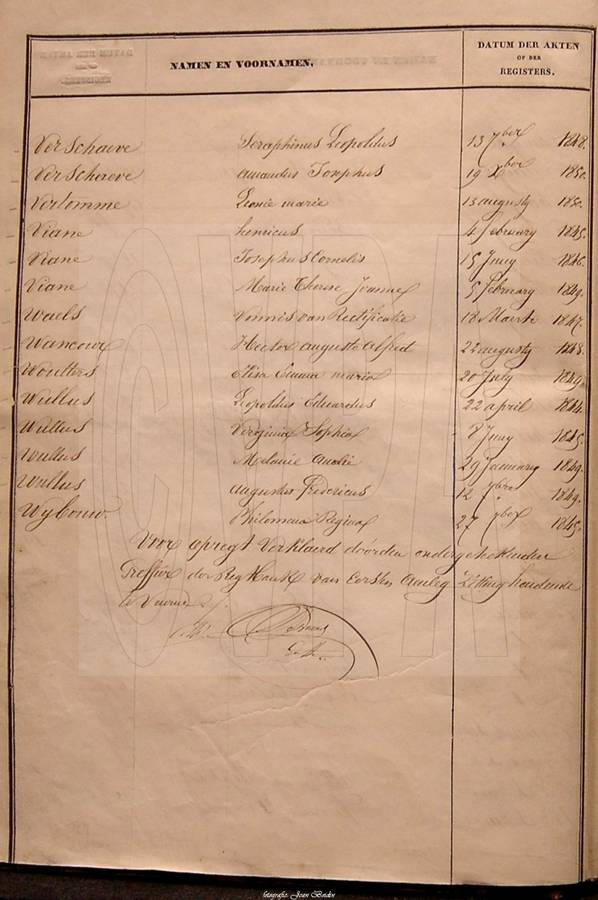 NAMEN EN VOORNAMEN.
DATUM DER AKTEN
OF DER
REGISTERS.
Verschaeve Seraphinus Leopoldus 13 7ber 1848.
Verschaeve amandus Josephus 19 Xber 1850.
Vertomme Leonie marie 13 augusty 1850.
Viane henricus 4 february 1845.
Viane Josephus Cornelis 15 Juny 1846.
Viane Marie Therese Joanne 5 february 1849.
Waels Vonnis van Rectificatie 18 Maerte 1847.
Wancour Hector auguste alfred 22 augusty 1848.
Woulters Elisa Emma maria 20 July 1849.
Wullus Leopoldus Eduardus 22 april 1844.
Wullus Virginia Sophia 8 Juny 1845.
Wullus Melanie amelie 29 january 1849.
Wullus augustus fredericus 12 1849.
Wybouw Philomena Regina 27 7ber 1845.
Voor opregt Verklaerd door den ondergeteekenden
Greffier der Regtbank van Eersten Aenleg Zitting houdende
te Veurne
CVDH
fotografie: Joan Boidin